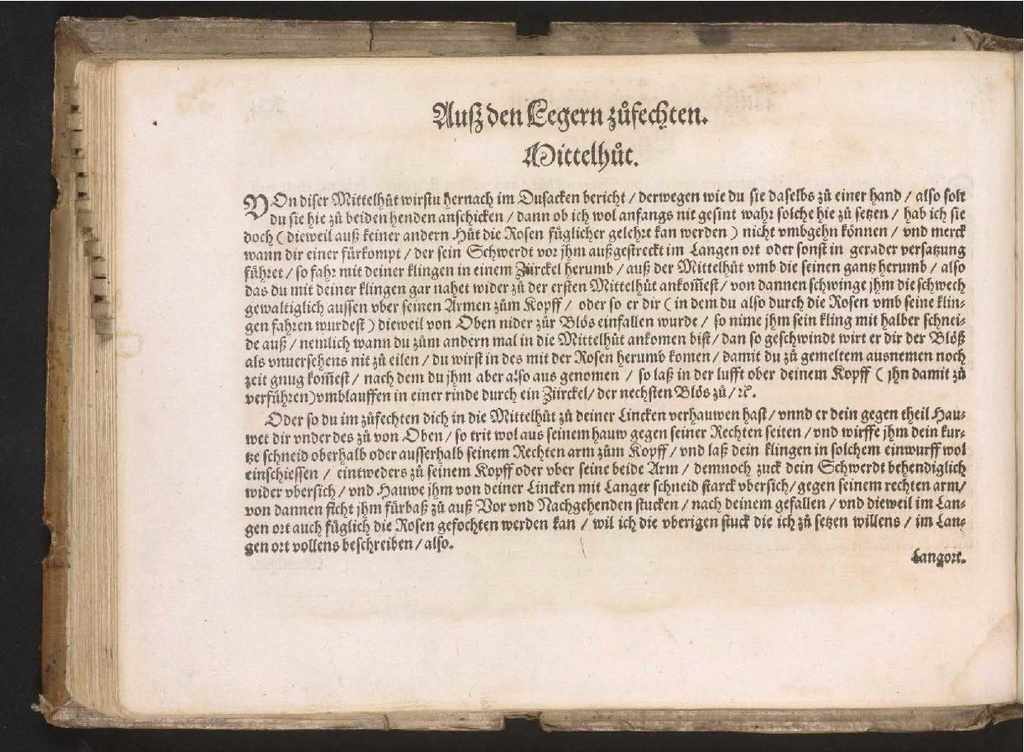 Auß den Legern zůfechten.
Mittelhůt.
VOn diser Mittelhůt wirstu hernach im Dusacken bericht / derwegen wie du sie daselbs zů einer hand / also solt
du sie hie zů beiden henden anschicken / dann ob ich wol anfangs nit gesint wahr solche hie zů setzen / hab ich sie
doch ( dieweil auß keiner andern Hůt die Rosen füglicher gelehrt kan werden ) nicht vmbgehn können / vnd merck
wann dir einer fürkompt / der sein Schwerdt vor jhm außgestreckt im Langen ort oder sonst in gerader versatzung
führet / so fahr mit deiner klingen in einem Zürckel herumb / auß der Mittelhůt vmb die seinen gantz herumb / also
das du mit deiner klingen gar nahet wider zů der ersten Mittelhůt ankom̃est / von dannen schwinge jhm die schwech
gewaltiglich aussen vber seinen Armen zům Kopff / oder so er dir ( in dem du also durch die Rosen vmb seine klin⸗
gen fahren wurdest ) dieweil von Oben nider zůr Blös einfallen wurde / so nime jhm sein kling mit halber schnei⸗
de auß / nemlich wann du zům andern mal in die Mittelhůt ankomen bist / dan so geschwindt wirt er dir der Blöß
als vnuersehens nit zů eilen / du wirst in des mit der Rosen herumb komen / damit du zů gemeltem ausnemen noch
zeit gnug kom̃est / nach dem du jhm aber also aus genomen / so laß in der lufft ober deinem Kopff ( jhn damit zů
verführen ) vmblauffen in einer rinde durch ein Zürckel / der nechsten Blös zů / ꝛc.
Oder so du im zůfechten dich in die Mittelhůt zů deiner Lincken verhauwen hast / vnnd er dein gegen theil Hau⸗
wet dir vnder des zů von Oben / so trit wol aus seinem hauw gegen seiner Rechten seiten / vnd würffe jhm dein kur⸗
tze schneid oberhalb oder ausserhalb seinem Rechten arm zům Kopff / vnd laß dein klingen in solchem einwurff wol
einschiessen / eintweders zů seinem Kopff oder vber seine beide Arm / demnoch zuck dein Schwerdt behendiglich
wider vbersich / vnd Hauwe jhm von deiner Lincken mit Langer schneid starck vbersich / gegen seinem rechten arm /
von dannen ficht jhm fürbaß zů auß Vor vnd Nachgehenden stucken / nach deinem gefallen / vnd dieweil im Lan⸗
gen ort auch füglich die Rosen gefochten werden kan / wil ich die vberigen stuck die ich zů setzen willens / im Lan⸗
gen ort vollens beschreiben / also.
Langort.